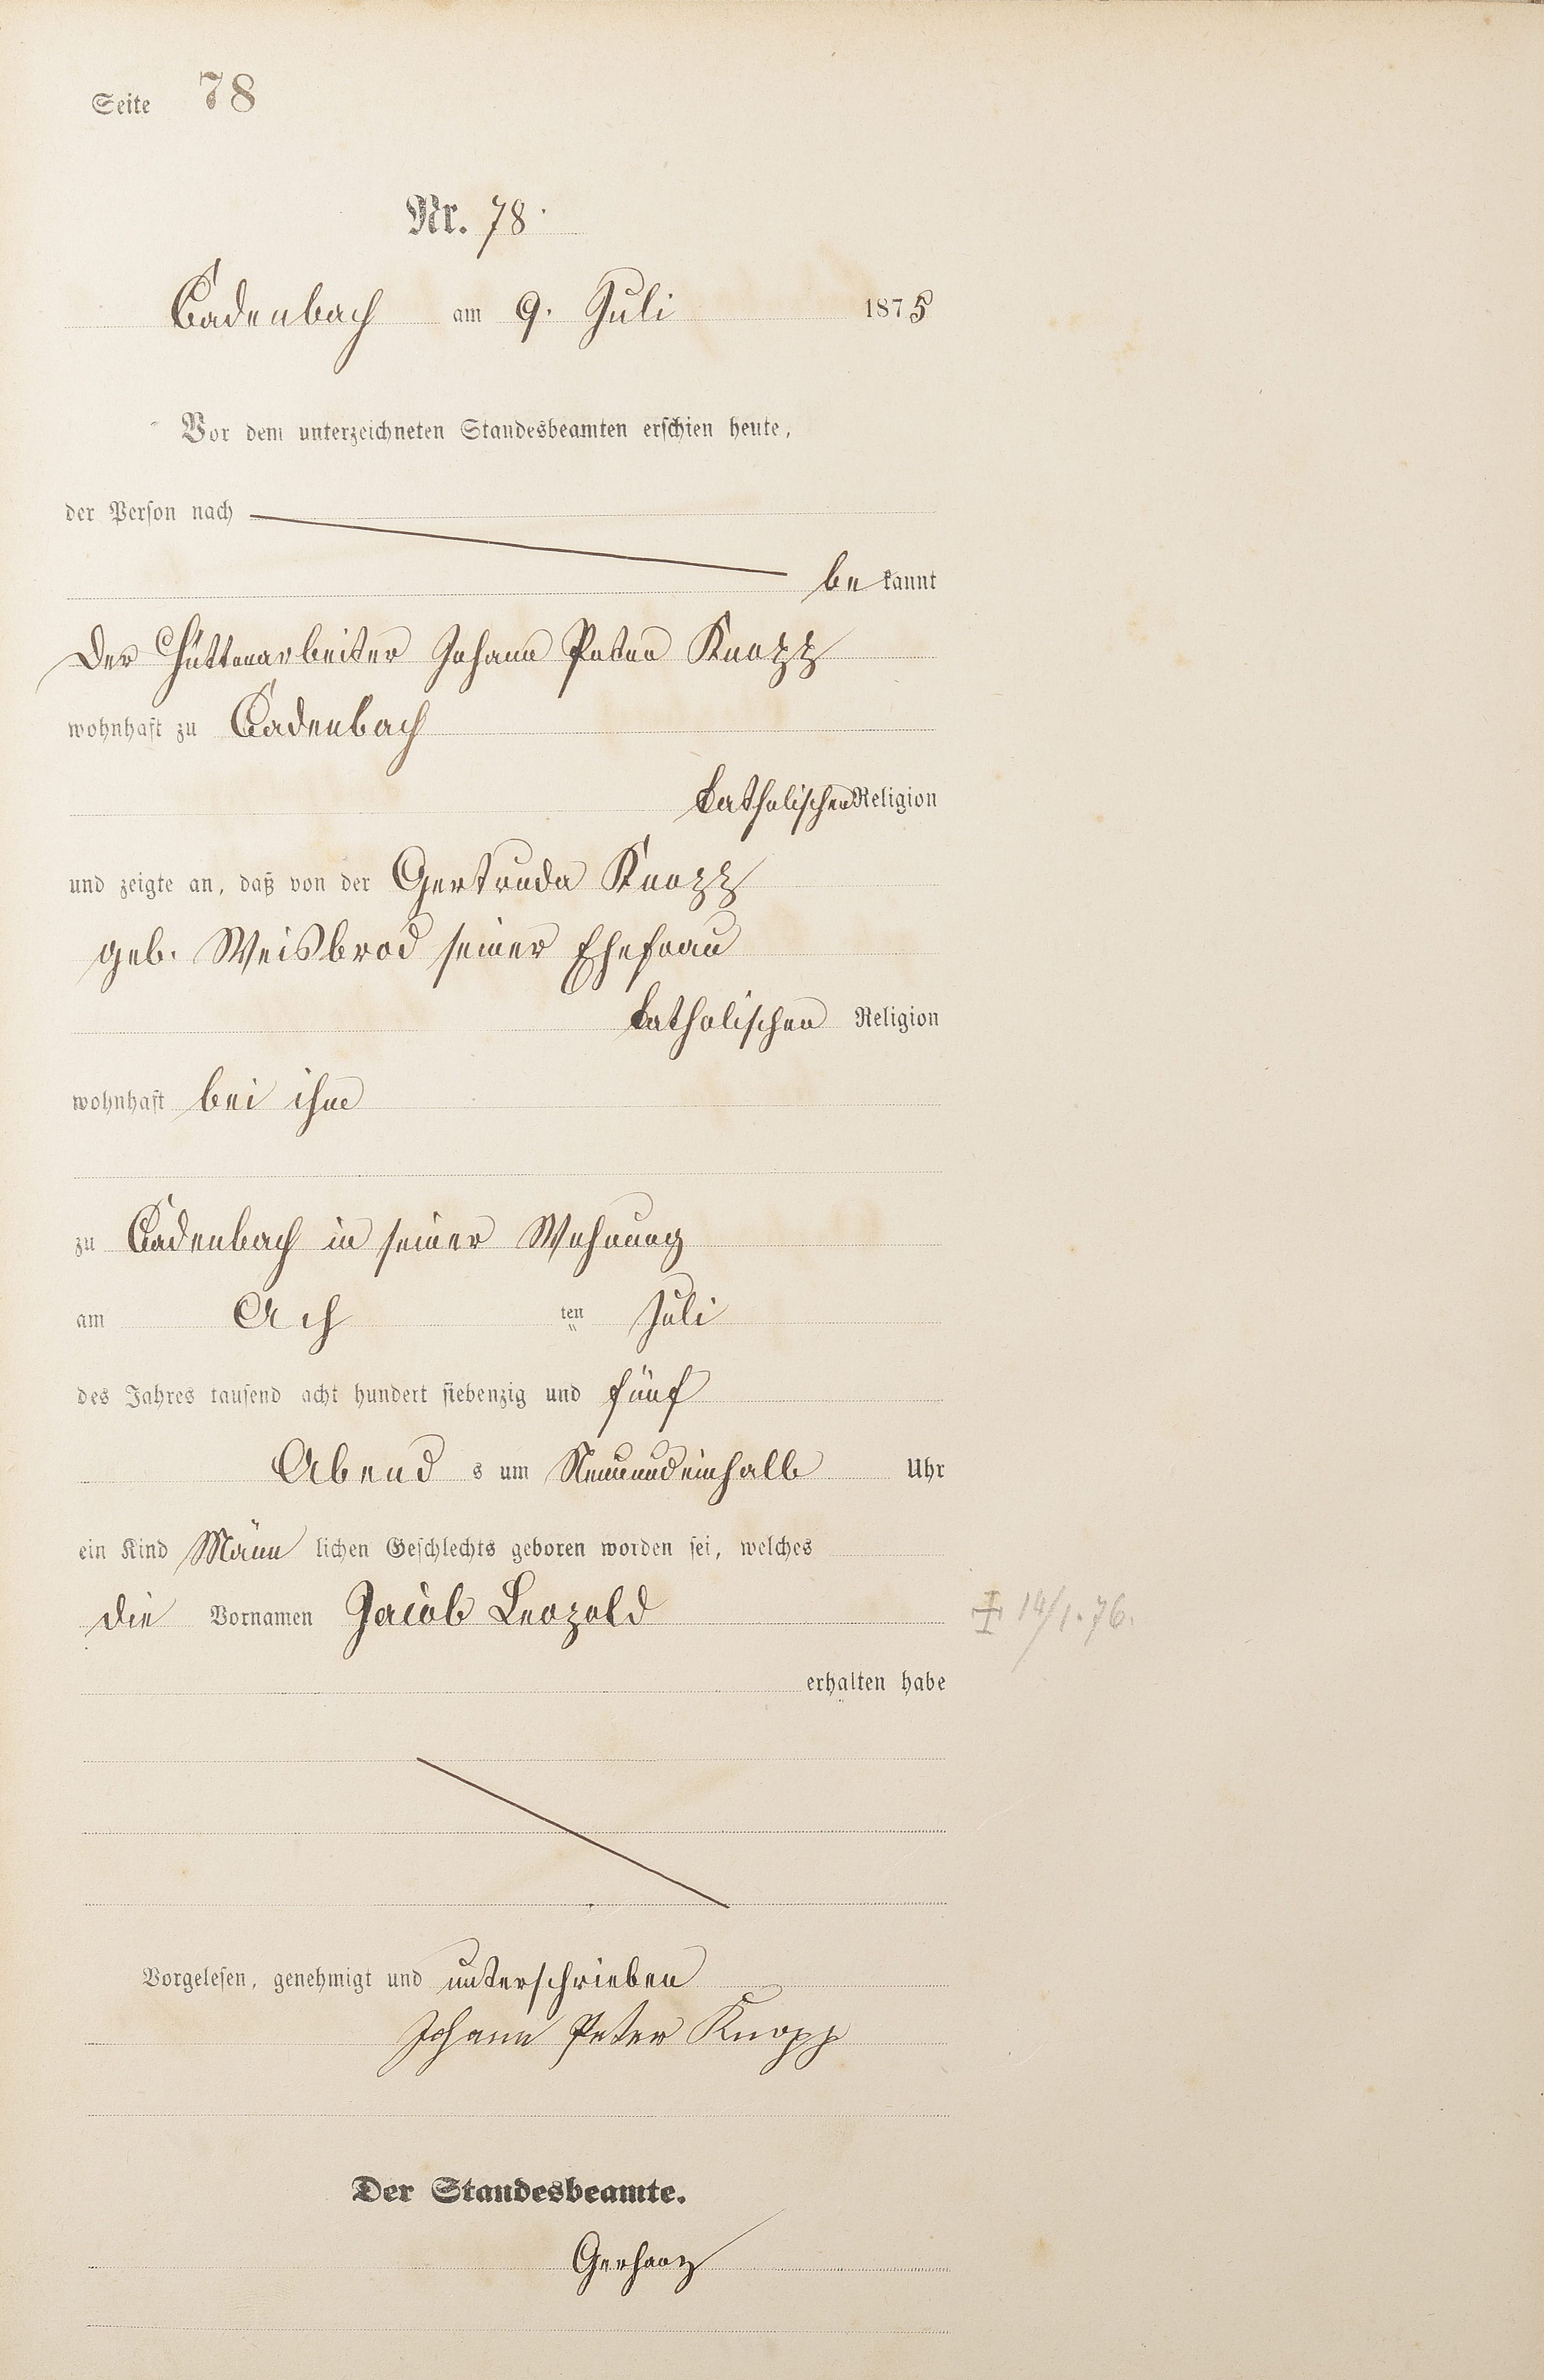 Seite 78
Nr. 78.
Cadenbach am 9. Juli 1875
Vor dem unterzeichneten Standesbeamten erschien heute,
der Person nach
be kannt
Der Hüttenarbeiter Johann Peter Knopp
wohnhaft zu Cadenbach
katholischer Religion
und zeigte an, daß von der Gertruda Knopp
geb. Weisbrod seiner Ehefrau
katholischer Religion
wohnhaft bei ihm
zu Cadenbach in seiner Wohnung
am Ach ten Juli
des Jahres tausend acht hundert siebenzig und fünf
Abend s um Neunundeinhalb Uhr
ein Kind Männ lichen Geschlechts geboren worden sei, welches
die Vornamen Jacob Leopold
† 14/1.76.
erhalten habe
Vorgelesen, genehmigt und unterschrieben
Johann Peter Knopp
Der Standesbeamte.
Gerharz